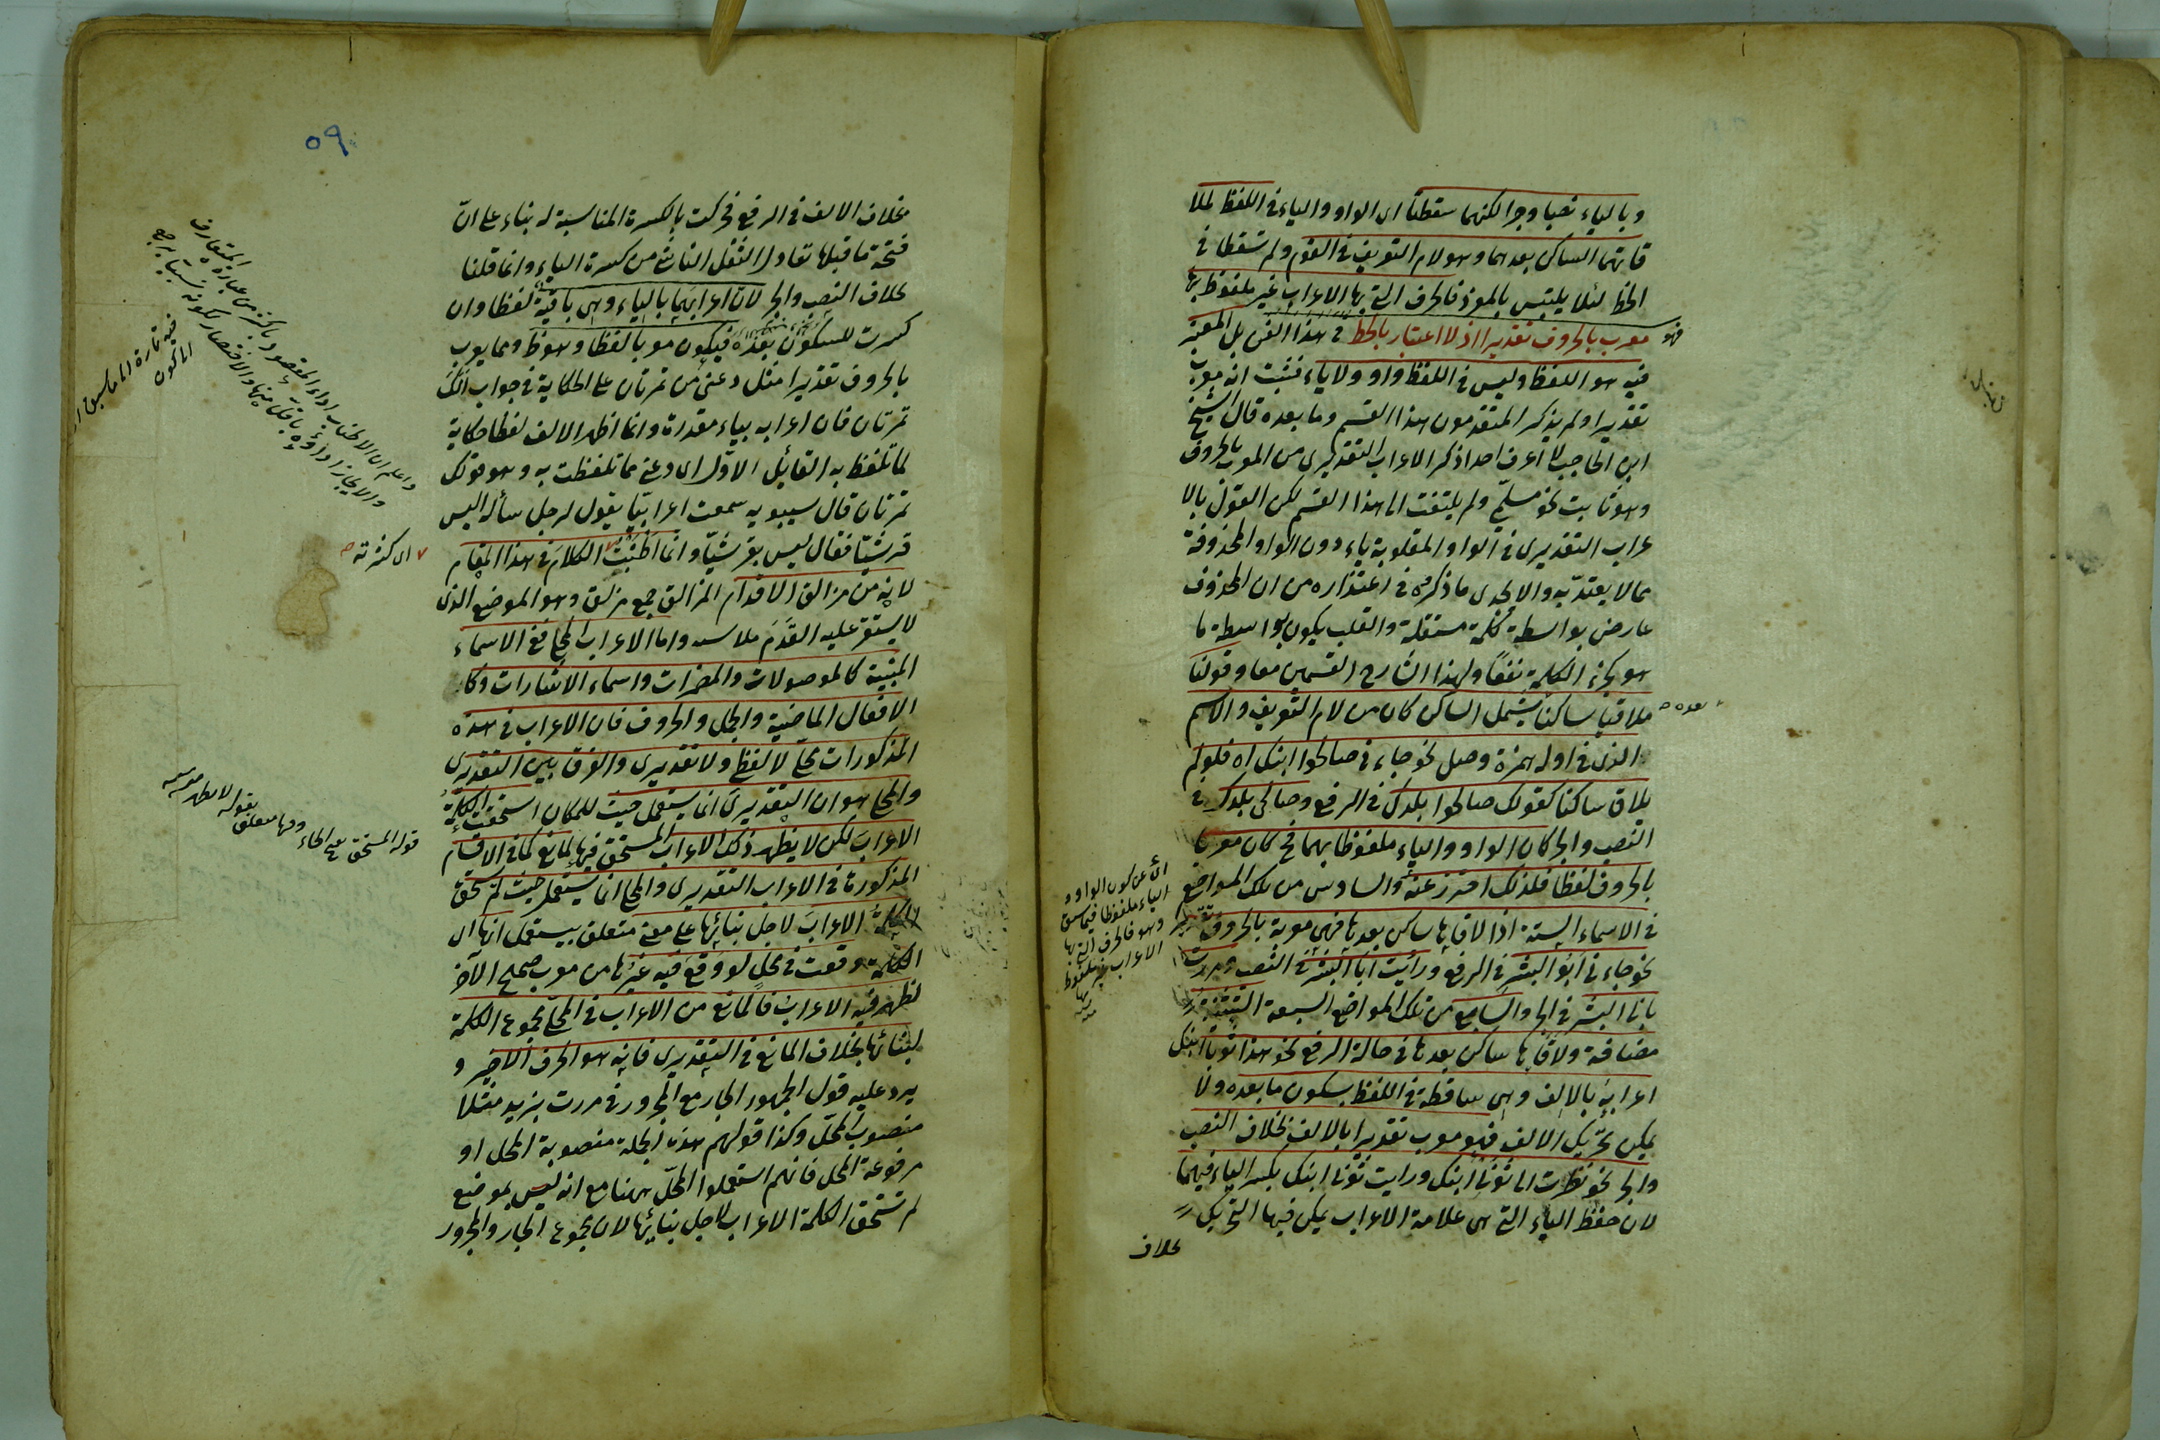 وبالياء نصبا وجرا لكنهما سقطتا اى الواو والياء فى اللفظ لملا
قاتهما الساكن بعدهما وهو لام التعريف فى القوم ولم تسقطا فى
الخط لئلا يلتبس بالمفرد فالحرف التى بها الاعراب غير ملفوظ بها
فهو معرب بالحروف تقديرا اذ لا اعتبار بالخط فى هذا الفن بل المعتبر
فيه هو اللفظ وليس فى اللفظ واو ولا ياء فثبت انه معرب
تقديرا ولم يذكر المتقدمون هذا القسم وما بعده قال الشيخ
ابن الحاجب لا اعرف احدا ذكر الاعراب التقديرى من المعرب بالحروف
وهو ثابت نحو مسلمى ولم يلتفت الى هذا القسم لكن القول بالا
عراب التقديرى فى الواو المقلوبة ياء دون الواو المحذوفة
مما لا يعتد به ولا يجدى ما ذكره فى اعتذاره من ان المحذوف
عارض بواسطة كلمة مستقلة والقلب يكون بواسطة ما
هو كجزء الكلمة نفعا ولهذا الشارح القسمين معا وقولنا
ملاقيا ساكنا يشمل الساكن كان من لام التعريف والاسم
الذى فى اوله همزة وصل نحو جاءنى صالحوا ابنك اه فلو لم
يلاق ساكنا كقولك صالحوا بلدك فى الرفع وصالحى بلدك فى
النصب والجر كان الواو والياء ملفوظا بهما فح كان معربا
بالحروف لفظا فلذلك احترز عنه والسادس من تلك المواضع
فى الاسماء الستة اذا لاقاها ساكن بعدها فهى معربة بالحروف تقديرا
نحو جاءنى ابو البشر فى الرفع ورأيت ابا البشر فى النصب ومررت
بابى البشر فى الجر والسابع من تلك المواضع السبعة التثنية
مضافة ولاقاها ساكن بعدها فى حالة الرفع نحو هذا ثوبا ابنك
اعرابه بالالف وهى ساقطة فى اللفظ بسكون ما بعده ولا
يمكن تحريك الالف فهو معرب تقديرا بالالف بخلاف النصب
والجر نحو نظرت الى ثوبى ابنك ورايت ثوبى ابنك بكسر الياء فيهما
لان حفظ الياء التى هى علامة الاعراب يمكن فيها التحريك
بخلاف
بعده
اى عن كون الواو و
الياء ملفوظا فيما سبق
وهو فالحرف التى بها
الاعراب غير ملفوظ
بها
٥٩
بخلاف الالف فى الرفع فحركت بالكسرة المناسبة له بناء على ان
فتحة ما قبلها تعادل الثقل الناشئ من كسرة الياء وانما قلنا
بخلاف النصب والجر لان اعرابهما بالياء وهى باقية لفظا وان
كسرت للسكون بعده فيكون معربا لفظا وهو ظ ومما يعرب
بالحروف تقديرا مثل دعنى من تمرتان على الحكاية فى جواب الك
تمرتان فان اعرابه بياء مقدرة وانما اظهر الالف لفظا حكاية
لما تلفظ به القائل الاول اى دعنى مما تلفظت به وهو قولك
تمرتان قال سيبويه سمعت اعرابيا يقول لرجل سأله اليس
قرشيا فقال ليس بقرشيا وانما اطنبت الكلام فى هذا المقام
لانه من مزالق الاقدام المزالق جمع مزلق وهو الموضع الذى
لا يستقر عليه القدم ملاسه واما الاعراب المحلى ففى الاسماء
المبنية كالموصولات والمضمرات واسماء الاشارات وكا
الافعال الماضية والجمل والحروف فان الاعراب فى هذه
المذكورات محلى لا لفظى ولا تقديرى والفرق بين التقديرى
والمحلى هو ان التقديرى انما يستعمل حيث للمكان استحقت الكلمة
الاعراب لكن لا يظهر ذلك الاعراب المستحق فيها لمانع كما فى الاقسام
المذكورة فى الاعراب التقديرى والمحلى انما يستعمل حيث لم تستحق
الكلمة الاعراب لاجل بنائها على معنى متعلق بيستعمل انها اى
الكلمة وقعت فى محل لو وقع فيه غيرها من معرب صحيح الآخر
لظهر فيه الاعراب فالمانع من الاعراب فى المحلى مجموع الكلمة
لبنائها بخلاف المانع فى التقديرى فانه هو الحرف الاخير و
يرد عليه قول الجمهور الجار مع المجرور فى مررت بزيد مثلا
منصوب المحل وكذا قولهم هذه الجملة منصوبة المحل او
مرفوعة المحل فانهم استعملوا المحل ههنا مع انه ليس بموضع
لم تستحق الكلمة الاعراب لاجل بنائها لان مجموع الجار والمجرور
واعلم ان الاطناب اداء المقصود باكثر من عبارة المتعارف
والايجاز اداؤه باقل منها والاختصار لكونه نسبيا يرجع
فيه تارة الى ما سبق
اى كثرته
قوله المستحق بفتح الحاء وفيها متعلق بقوله لا يظهر